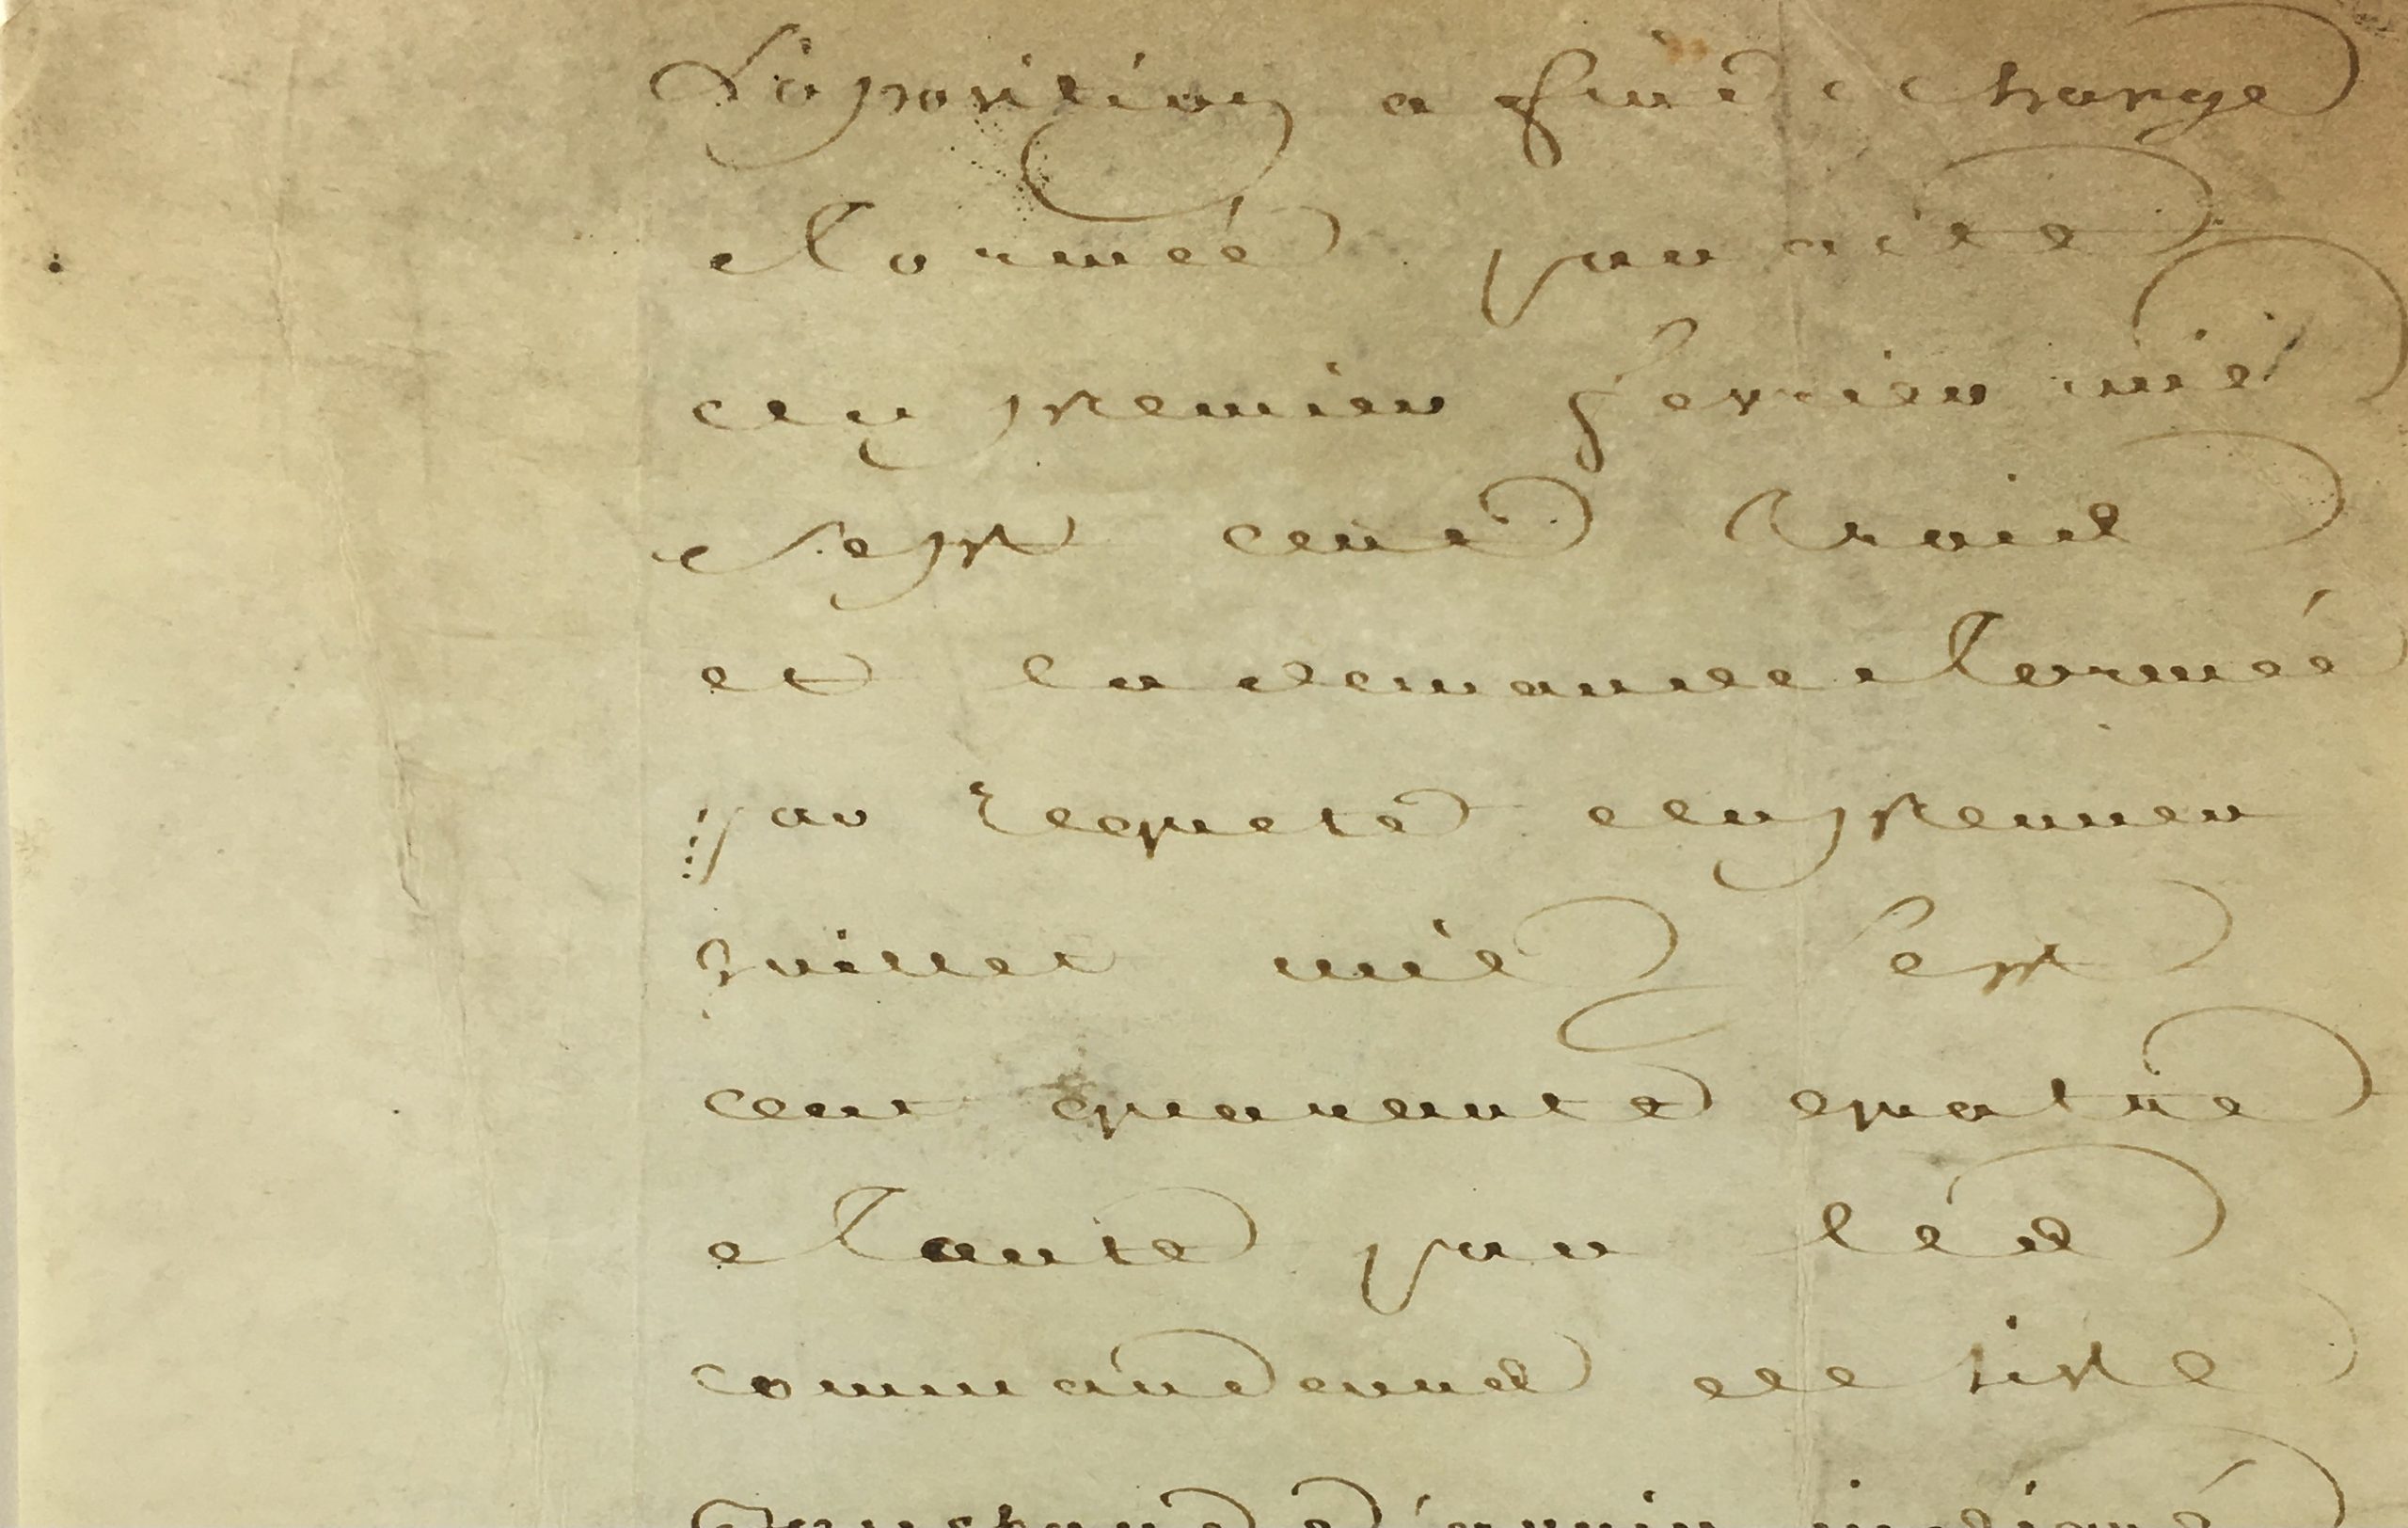 Loposition a fin de Charge
formée par acte
du premier fevrier mil
sept cent trois
et la demande formée
par requete du premier
juillet mil sept
cent quarente quatre
faute par les
commandeurs de